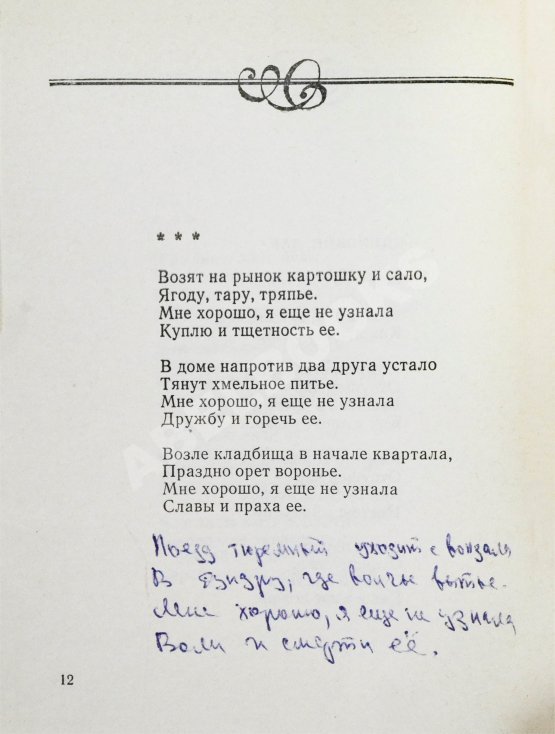 * * *
Возят на рынок картошку и сало,
Ягоду, тару, тряпье.
Мне хорошо, я еще не узнала
Куплю и тщетность ее.
В доме напротив два друга устало
Тянут хмельное питье.
Мне хорошо, я еще не узнала
Дружбу и горечь ее.
Возле кладбища в начале квартала,
Праздно орет воронье.
Мне хорошо, я еще не узнала
Славы и праха ее.
Поезд тюремный уходит с вокзала
В тундру, где волчье вытье.
Мне хорошо, я еще не узнала
Воли и смерти её.
12